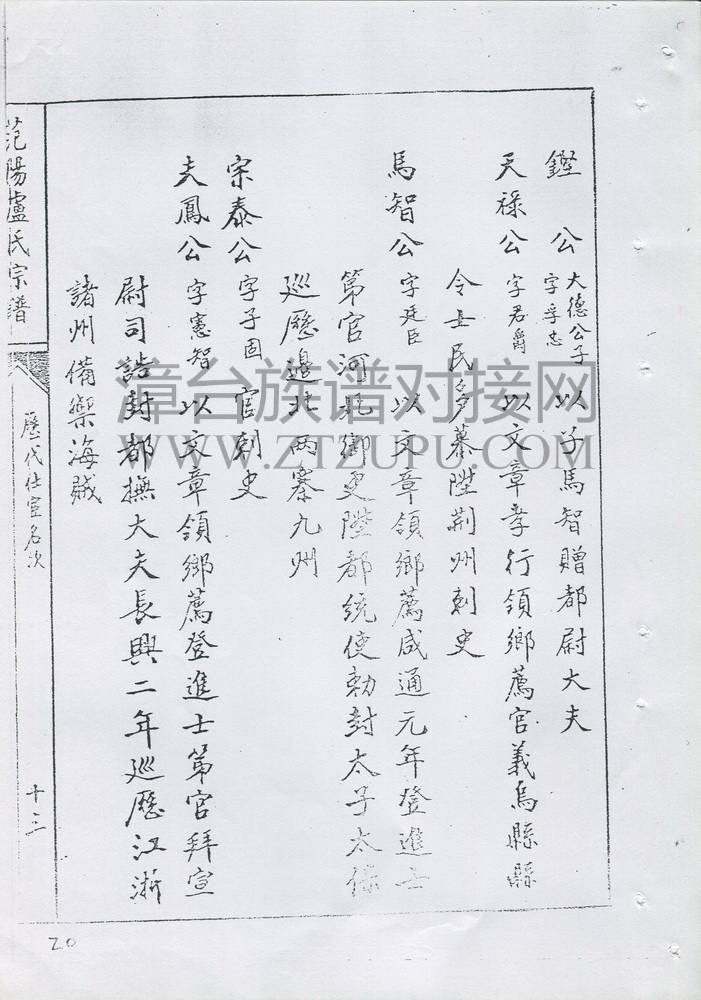 鏗公 大德公子字孚志 以子馬智贈都尉大夫
天祿公 字君爵 以文章孝行領鄉薦官義烏縣縣
令士民多慕陞荊州刺史
馬智公 字廷臣 以文章領鄉薦咸通元年登進士
第官河北御史陞都統使勅封太子太保
巡歷邊北兩寨九州
宗泰公 字子固 官刺史
夫鳳公 字憲智 以文章領鄉薦登進士第官拜宣
尉司誥封都撫大夫長興二年巡歷江浙
諸州備禦海賊
范陽盧氏宗譜
歷代仕宦名次
十三
20
漳台族谱对接网
WWW.ZTZUPU.COM